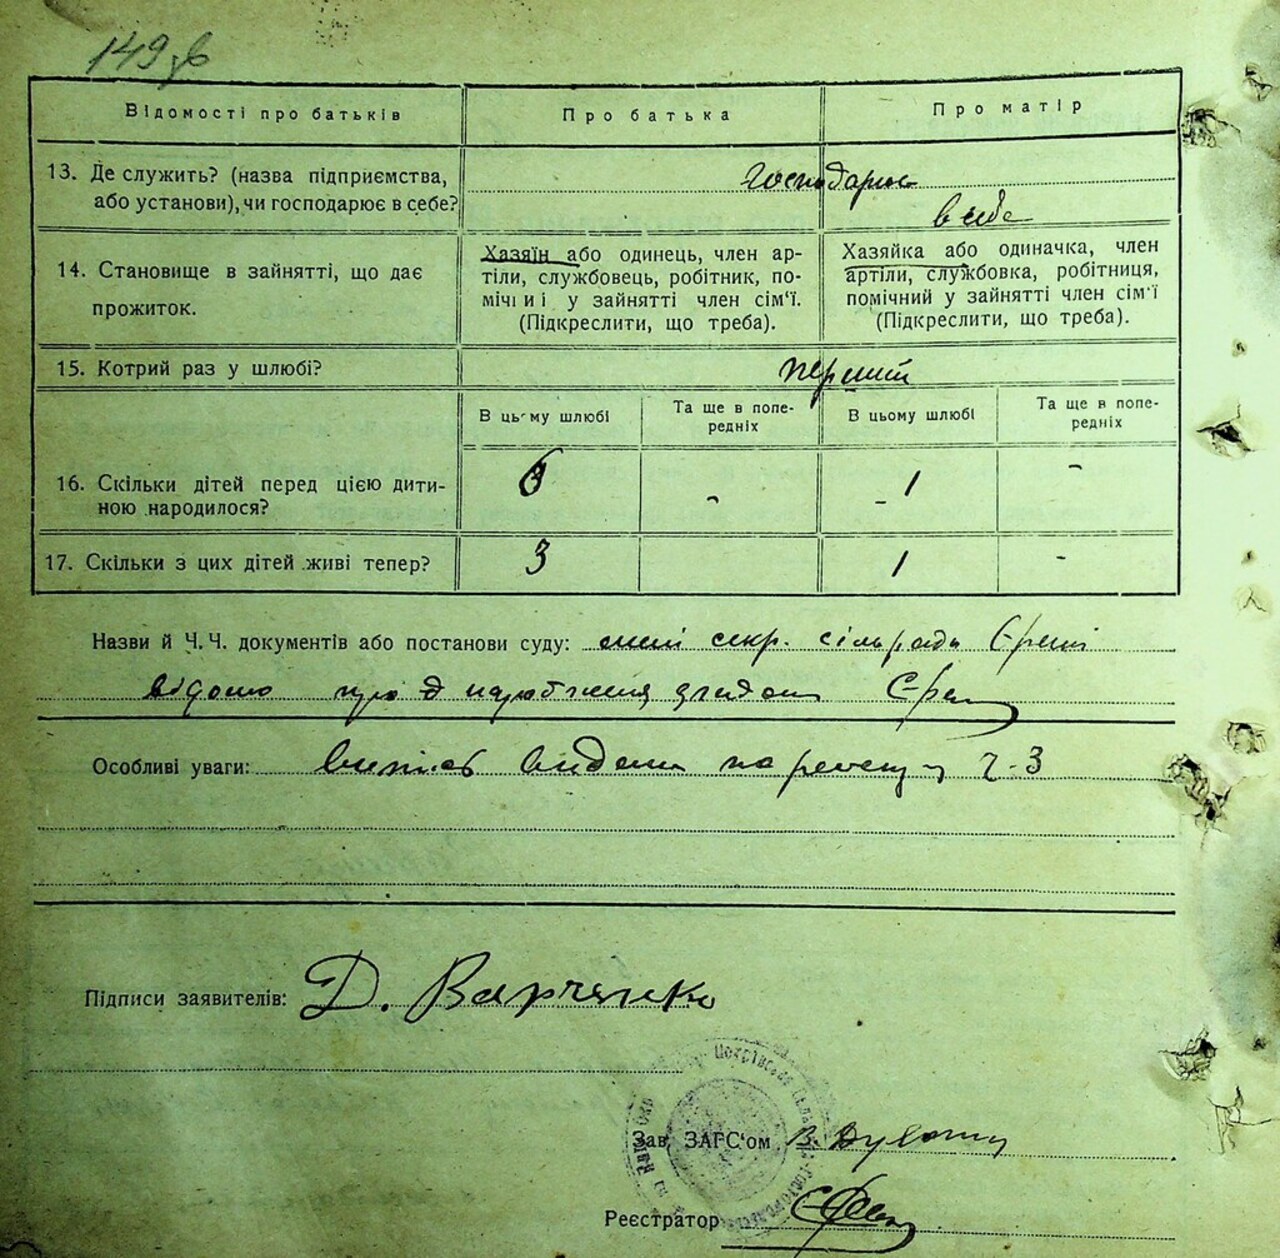 149 зв
Відомості про батьків
Про батька
Про матір
13. Де служить? (назва підприємства,
або установи), чи господарює в себе?
господарює
в себе
14. Становище в зайнятті, що дає
прожиток.
Хазяїн або одинець, член ар-
тіли, службовець, робітник, по-
мічниі у зайнятті член сім'ї.
(Підкреслити, що треба).
Хазяйка або одиначка, член
артіли, службовка, робітниця,
помічний у зайнятті член сім'ї
(Підкреслити, що треба).
15. Котрий раз у шлюбі?
перший
В цьому шлюбі
Та ще в попе-
редніх
В цьому шлюбі
Та ще в попе-
редніх
16. Скільки дітей перед цією дити-
ною народилося?
- 1 -
17. Скільки з цих дітей живі тепер?
3 1 -
Назви й Ч.Ч. документів або постанови суду: секр. сільради
відомо про
Особливі уваги: видана ч-3
Підписи заявителів: Д. Варченко
Зав. ЗАГС'ом В.
Реєстратор